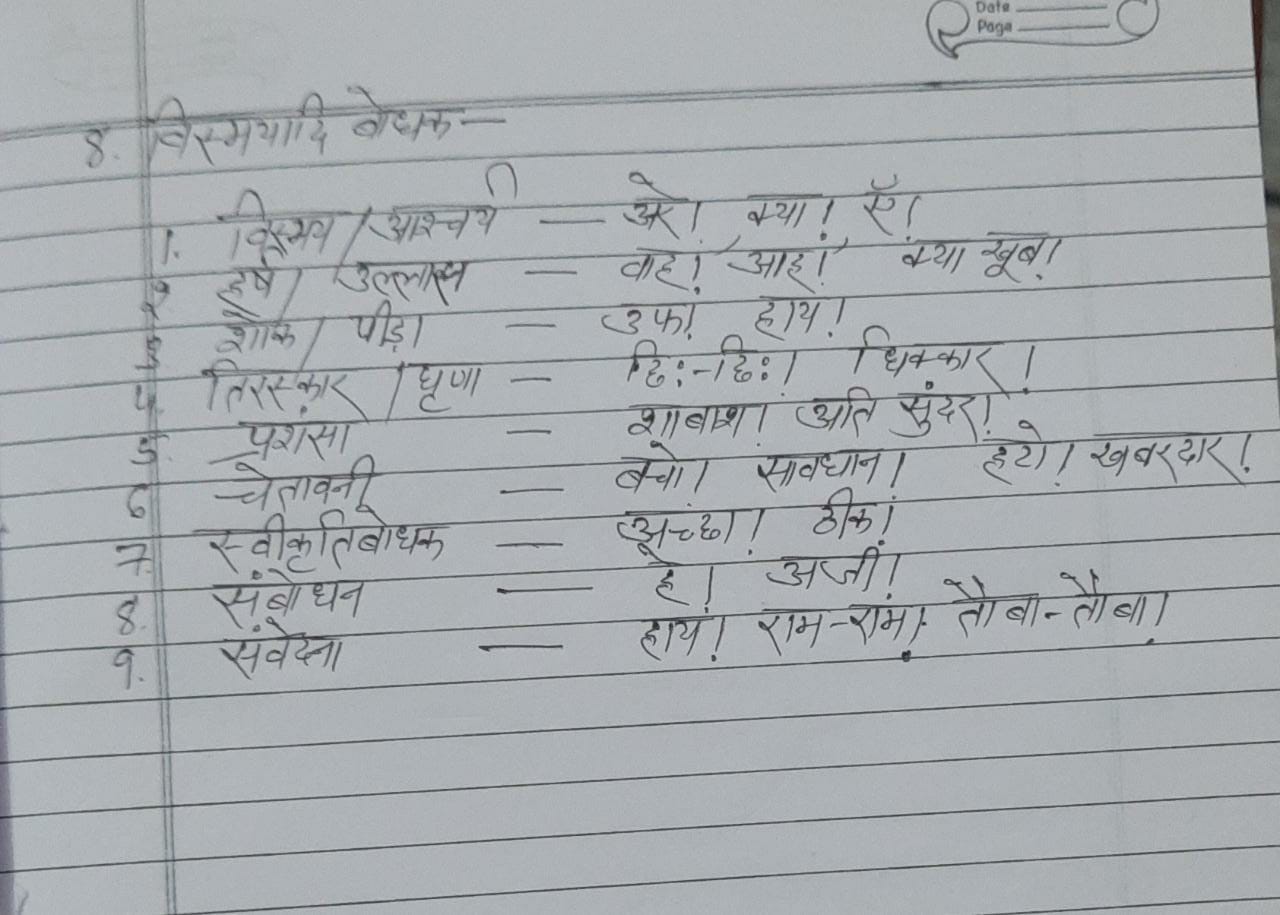 Date
Page
8. विस्मयादि बोधक —
1. विस्मय / आश्चर्य — अरे! क्या! ऍ!
2. हर्ष / उल्लास — वाह! आह! क्या खूब!
3 शोक / पीड़ा — उफ! हाय!
4. तिरस्कार / घृणा — छि:-छि:! धिक्कार!
5. प्रशंसा — शाबाश! अति सुंदर!
6 चेतावनी — बचो! सावधान! हटो! खबरदार!
7. स्वीकृतिबोधक — अच्छा! ठीक!
8. संबोधन — हे! अजी!
9. संवेदना — हाय! राम-राम! तौबा-तौबा!